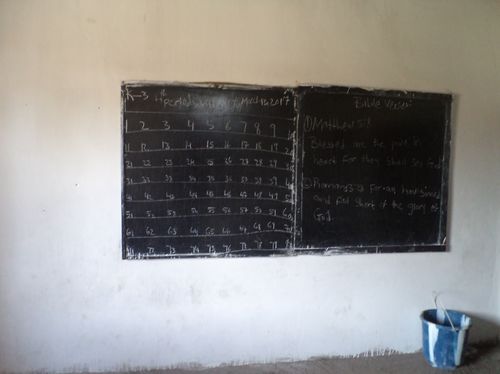 K-3 4th Period March 13 2017
1 2 3 4 5 6 7 8 9
11 12 13 14 15 16 17 18 19
21 22 23 24 25 26 27 28 29
31 32 33 34 35 36 37 38 39
41 42 43 44 45 46 47 48 49
51 52 53 54 55 56 57 58 59
61 62 63 64 65 66 67 68 69
72 73 74 75 76 77 78 79
Bible Verses
① Matthew 5:8
Blessed are the pure in
heart for they shall see God
② Romans 3:23 For all have sinned
and fall short of the glory of
God